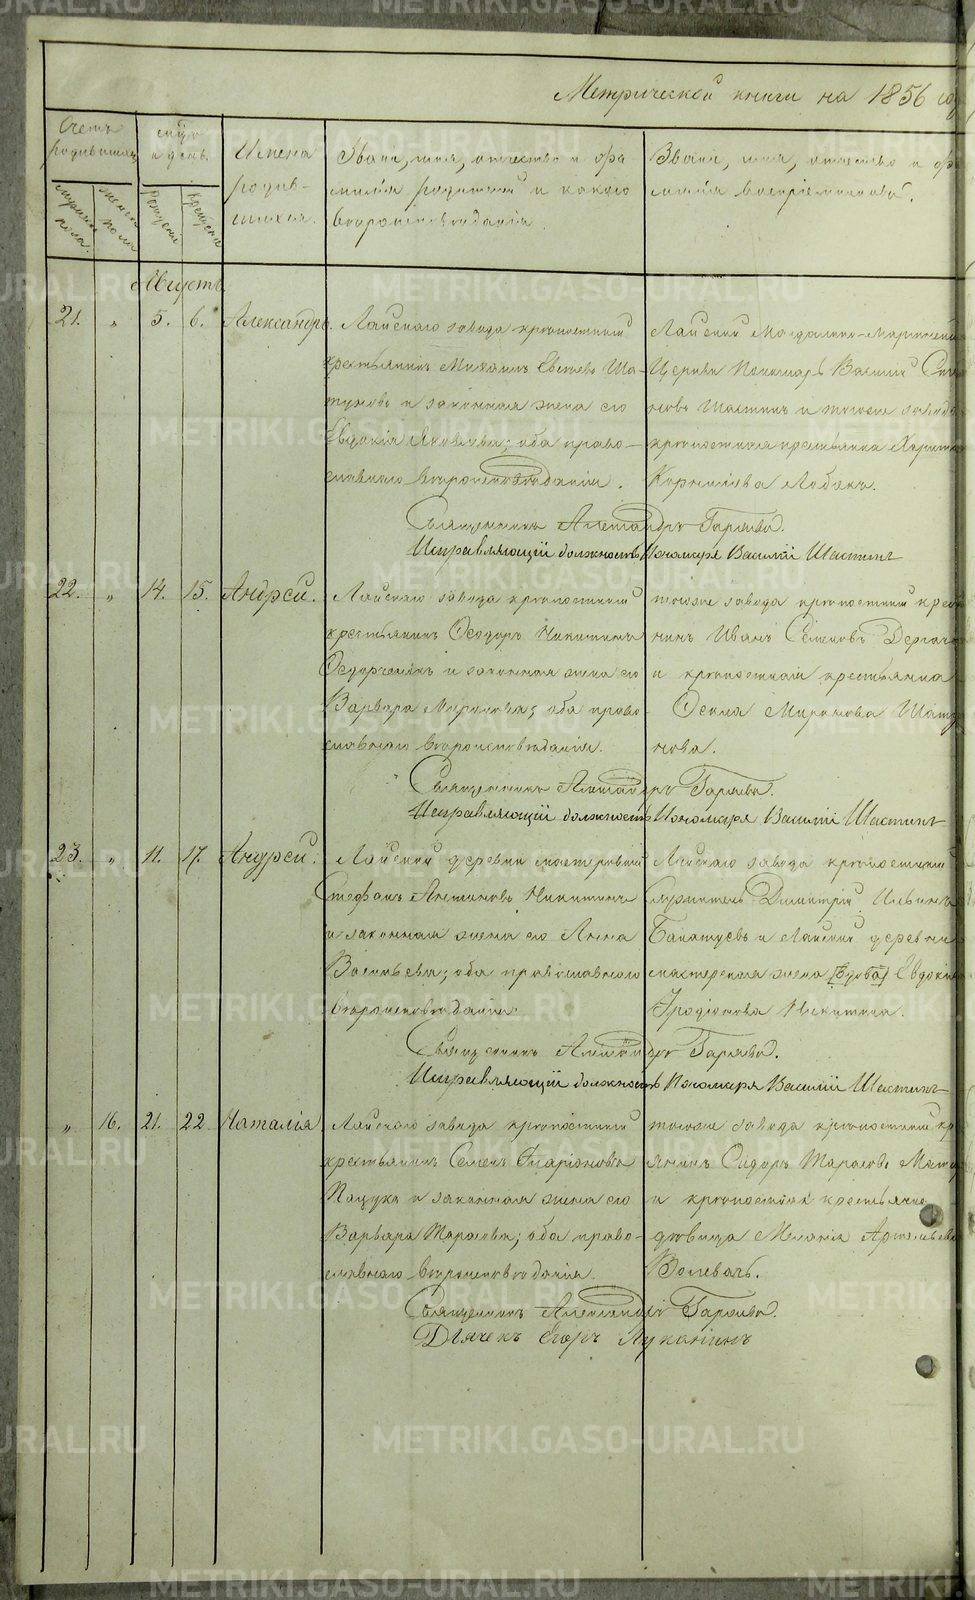 Метрической книги на 1856 го
Счетъ родившихся
мужеска пола.
женска пола
м-цъ и день.
рожденія
крещенія
Имена родив-шихся.
Званіе, имя, отчество и фа-
милія родителей и какого
вѣроисповѣданія.
Званіе, имя, отчество и фа-
милія воспріемниковъ.
Августъ
21. „ 5. 6. Александръ.
Лайскаго завода крѣпостный
крестьянинъ Михаилъ Ша-
туновъ и законная жена его
Евдокія Яковлева; оба право-
славнаго вѣроисповѣданія.
Лайской Магдалино-Маріинской
Церкви Пономарь Василій
новъ Шастинъ и тогоже завода
крѣпостная крестьянка
Корнилова
Священникъ Александръ Гаряевъ.
Исправляющій должность Пономаря Василій Шастинъ
22. „ 14. 15. Андрей.
Лайскаго завода крѣпостный
крестьянинъ Ѳеодоръ Никитинъ
Ѳедорченокъ и законная жена его
Варвара Миронова; оба право-
славнаго вѣроисповѣданія.
тогоже завода крѣпостный крес
нинъ Иванъ Семеновъ Дергач
и крѣпостная крестьянка
Миронова Шату
нова.
Священникъ Александръ Гаряевъ.
Исправляющій должность Пономаря Василій Шастинъ
23. „ 11. 17. Андрей.
Лайской деревни мастеровый
Стефанъ Антоновъ Никитинъ
и законная жена его Анна
Васильева; оба православнаго
вѣроисповѣданія.
Лайскаго завода крѣпостный
служитель Димитрій Ильинъ
и Лайской деревни
мастерская жена (вдова) Евдокія
Иродіонова Никитина.
Священникъ Александръ Гаряевъ.
Исправляющій должность Пономаря Василій Шастинъ
„ 16. 21. 22 Наталія
Лайскаго завода крѣпостный
крестьянинъ Семенъ Иларіоновъ
Пацука и законная жена его
Варвара Тарасова; оба право-
славнаго вѣроисповѣданія.
тогоже завода крѣпостный кр
янинъ Сидоръ Тарасовъ
и крѣпостная крестьянка
дѣвица Меланія Артемьева
Волеваль.
Священникъ Александръ Гаряевъ.
Дьячекъ Егоръ Луканинъ
METRIKI.GASO-URAL.RU